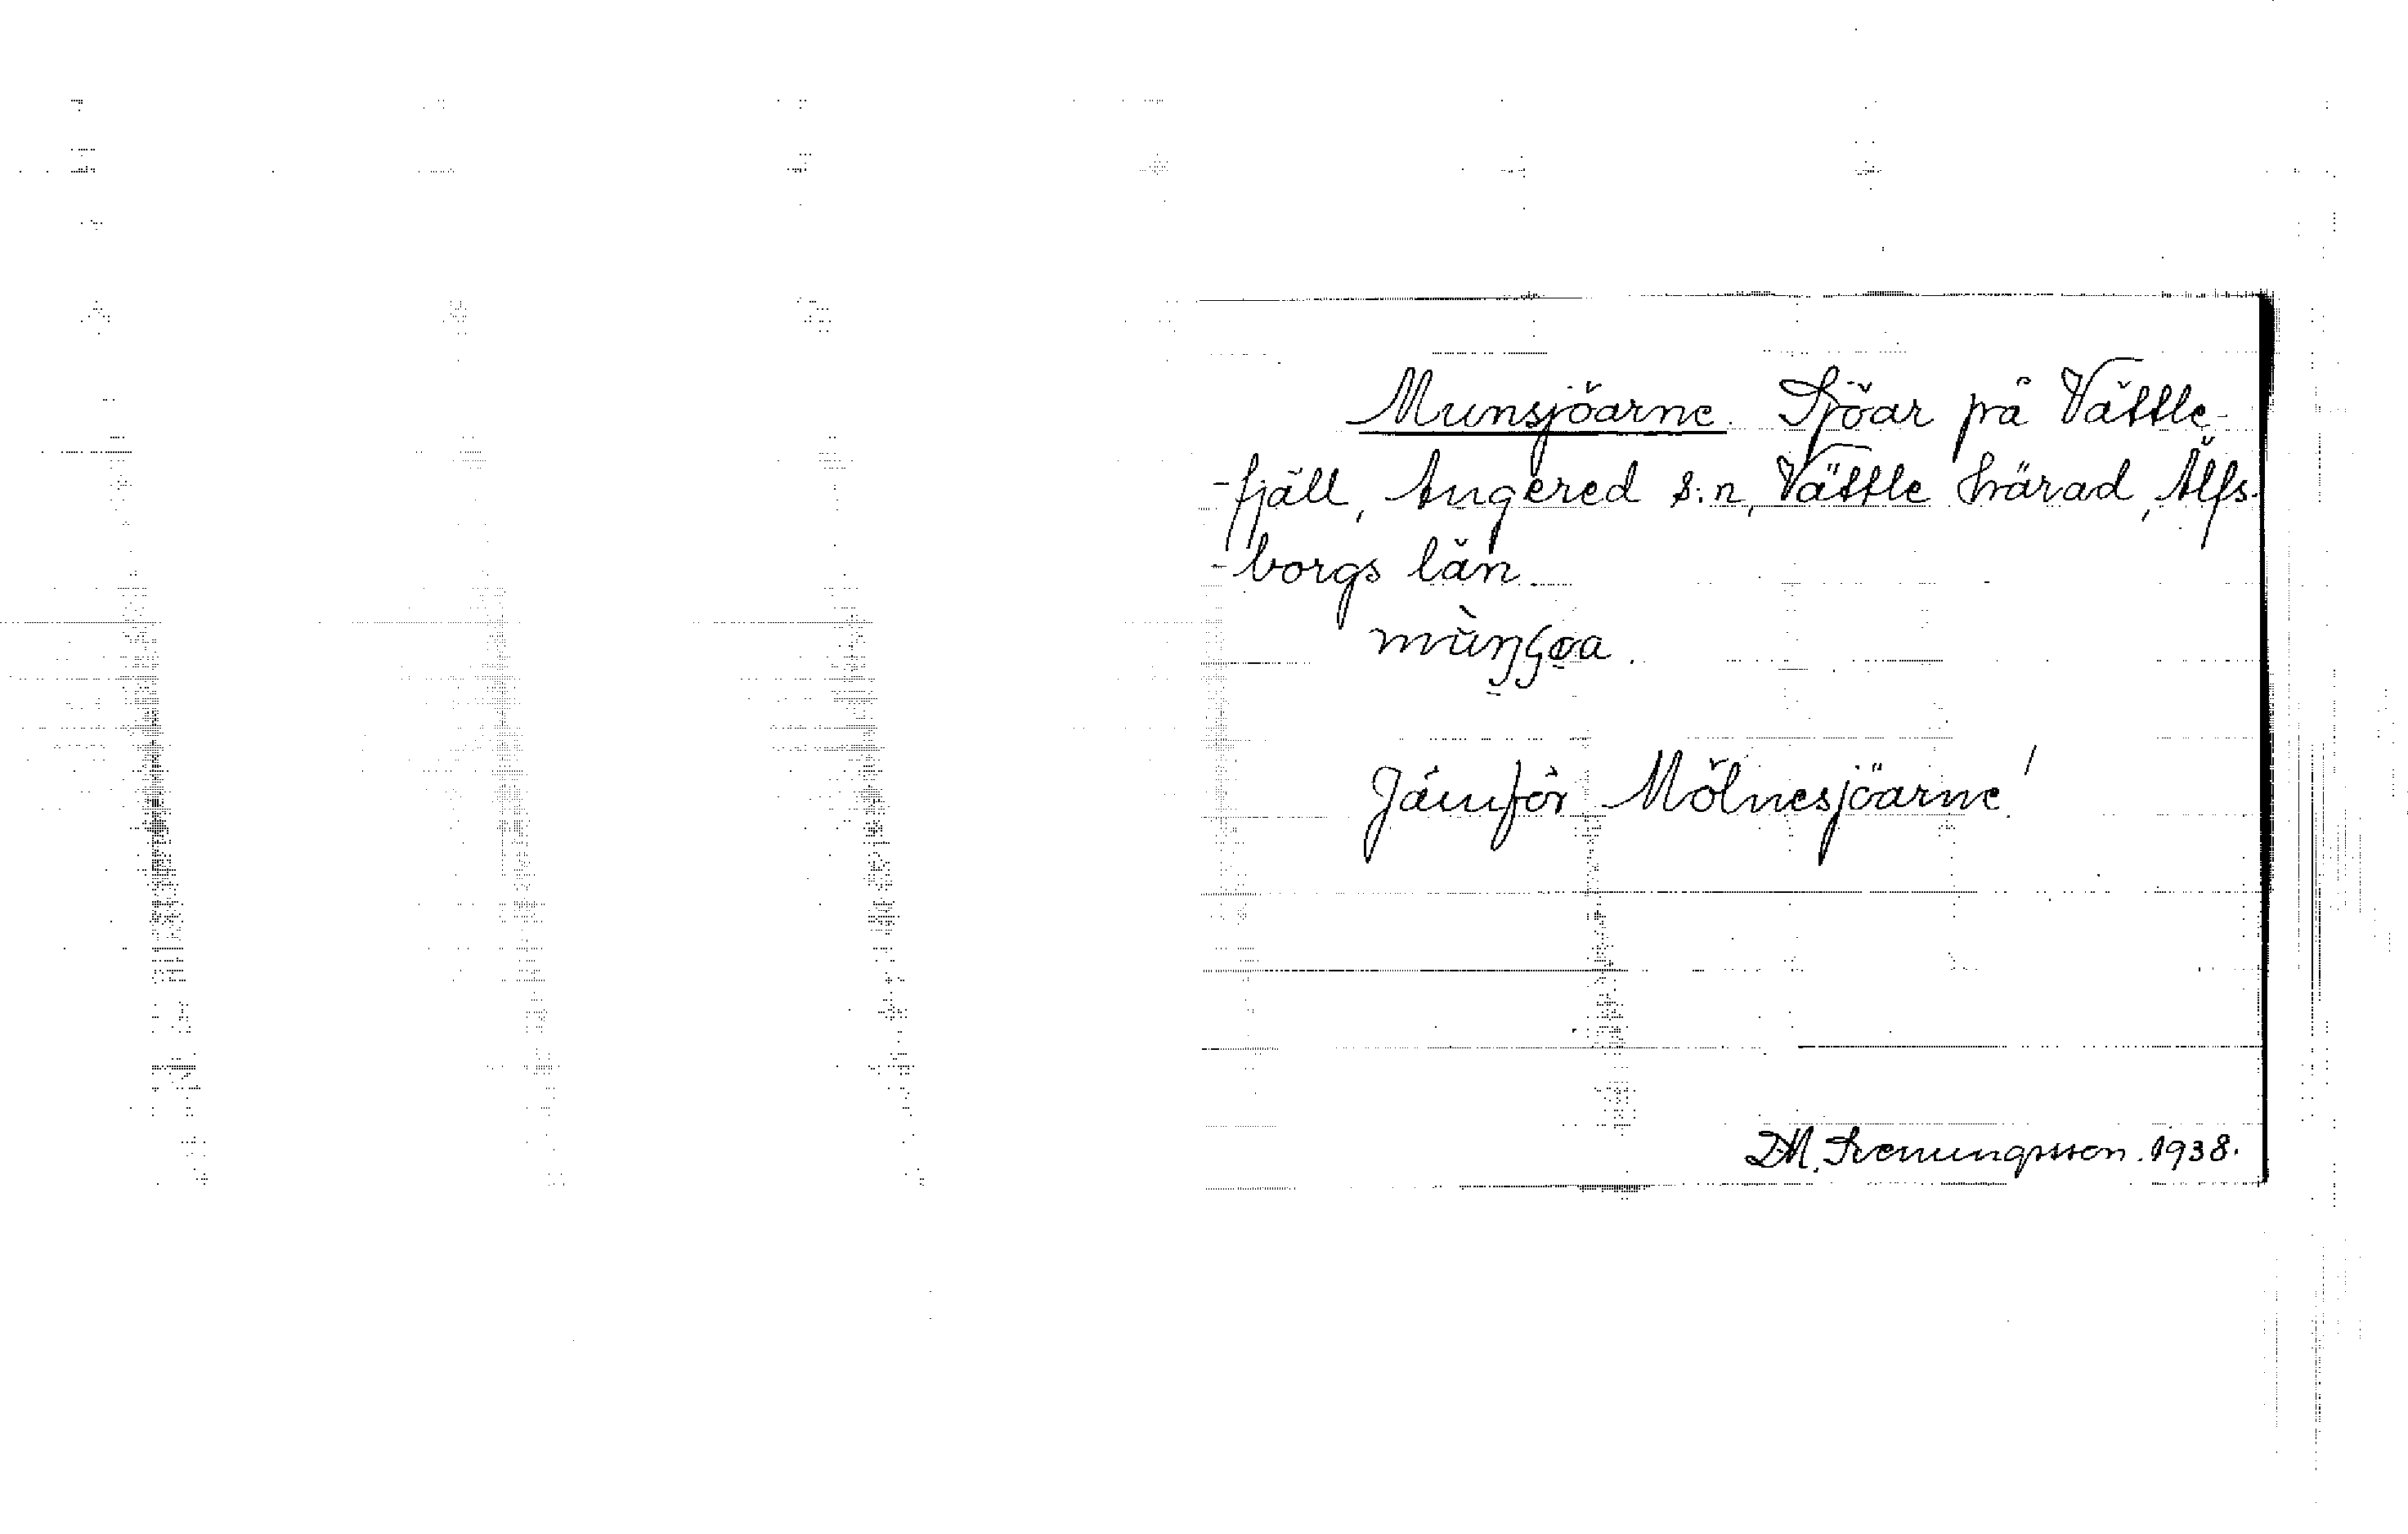 Munsjöarne. Sjöar på Vättle-
-fjäll, Angered s:n, Vättle härad, Älfs-
-borgs län.
Jämför Mölnesjöarne!
D.M. Svenungsson. 1938.